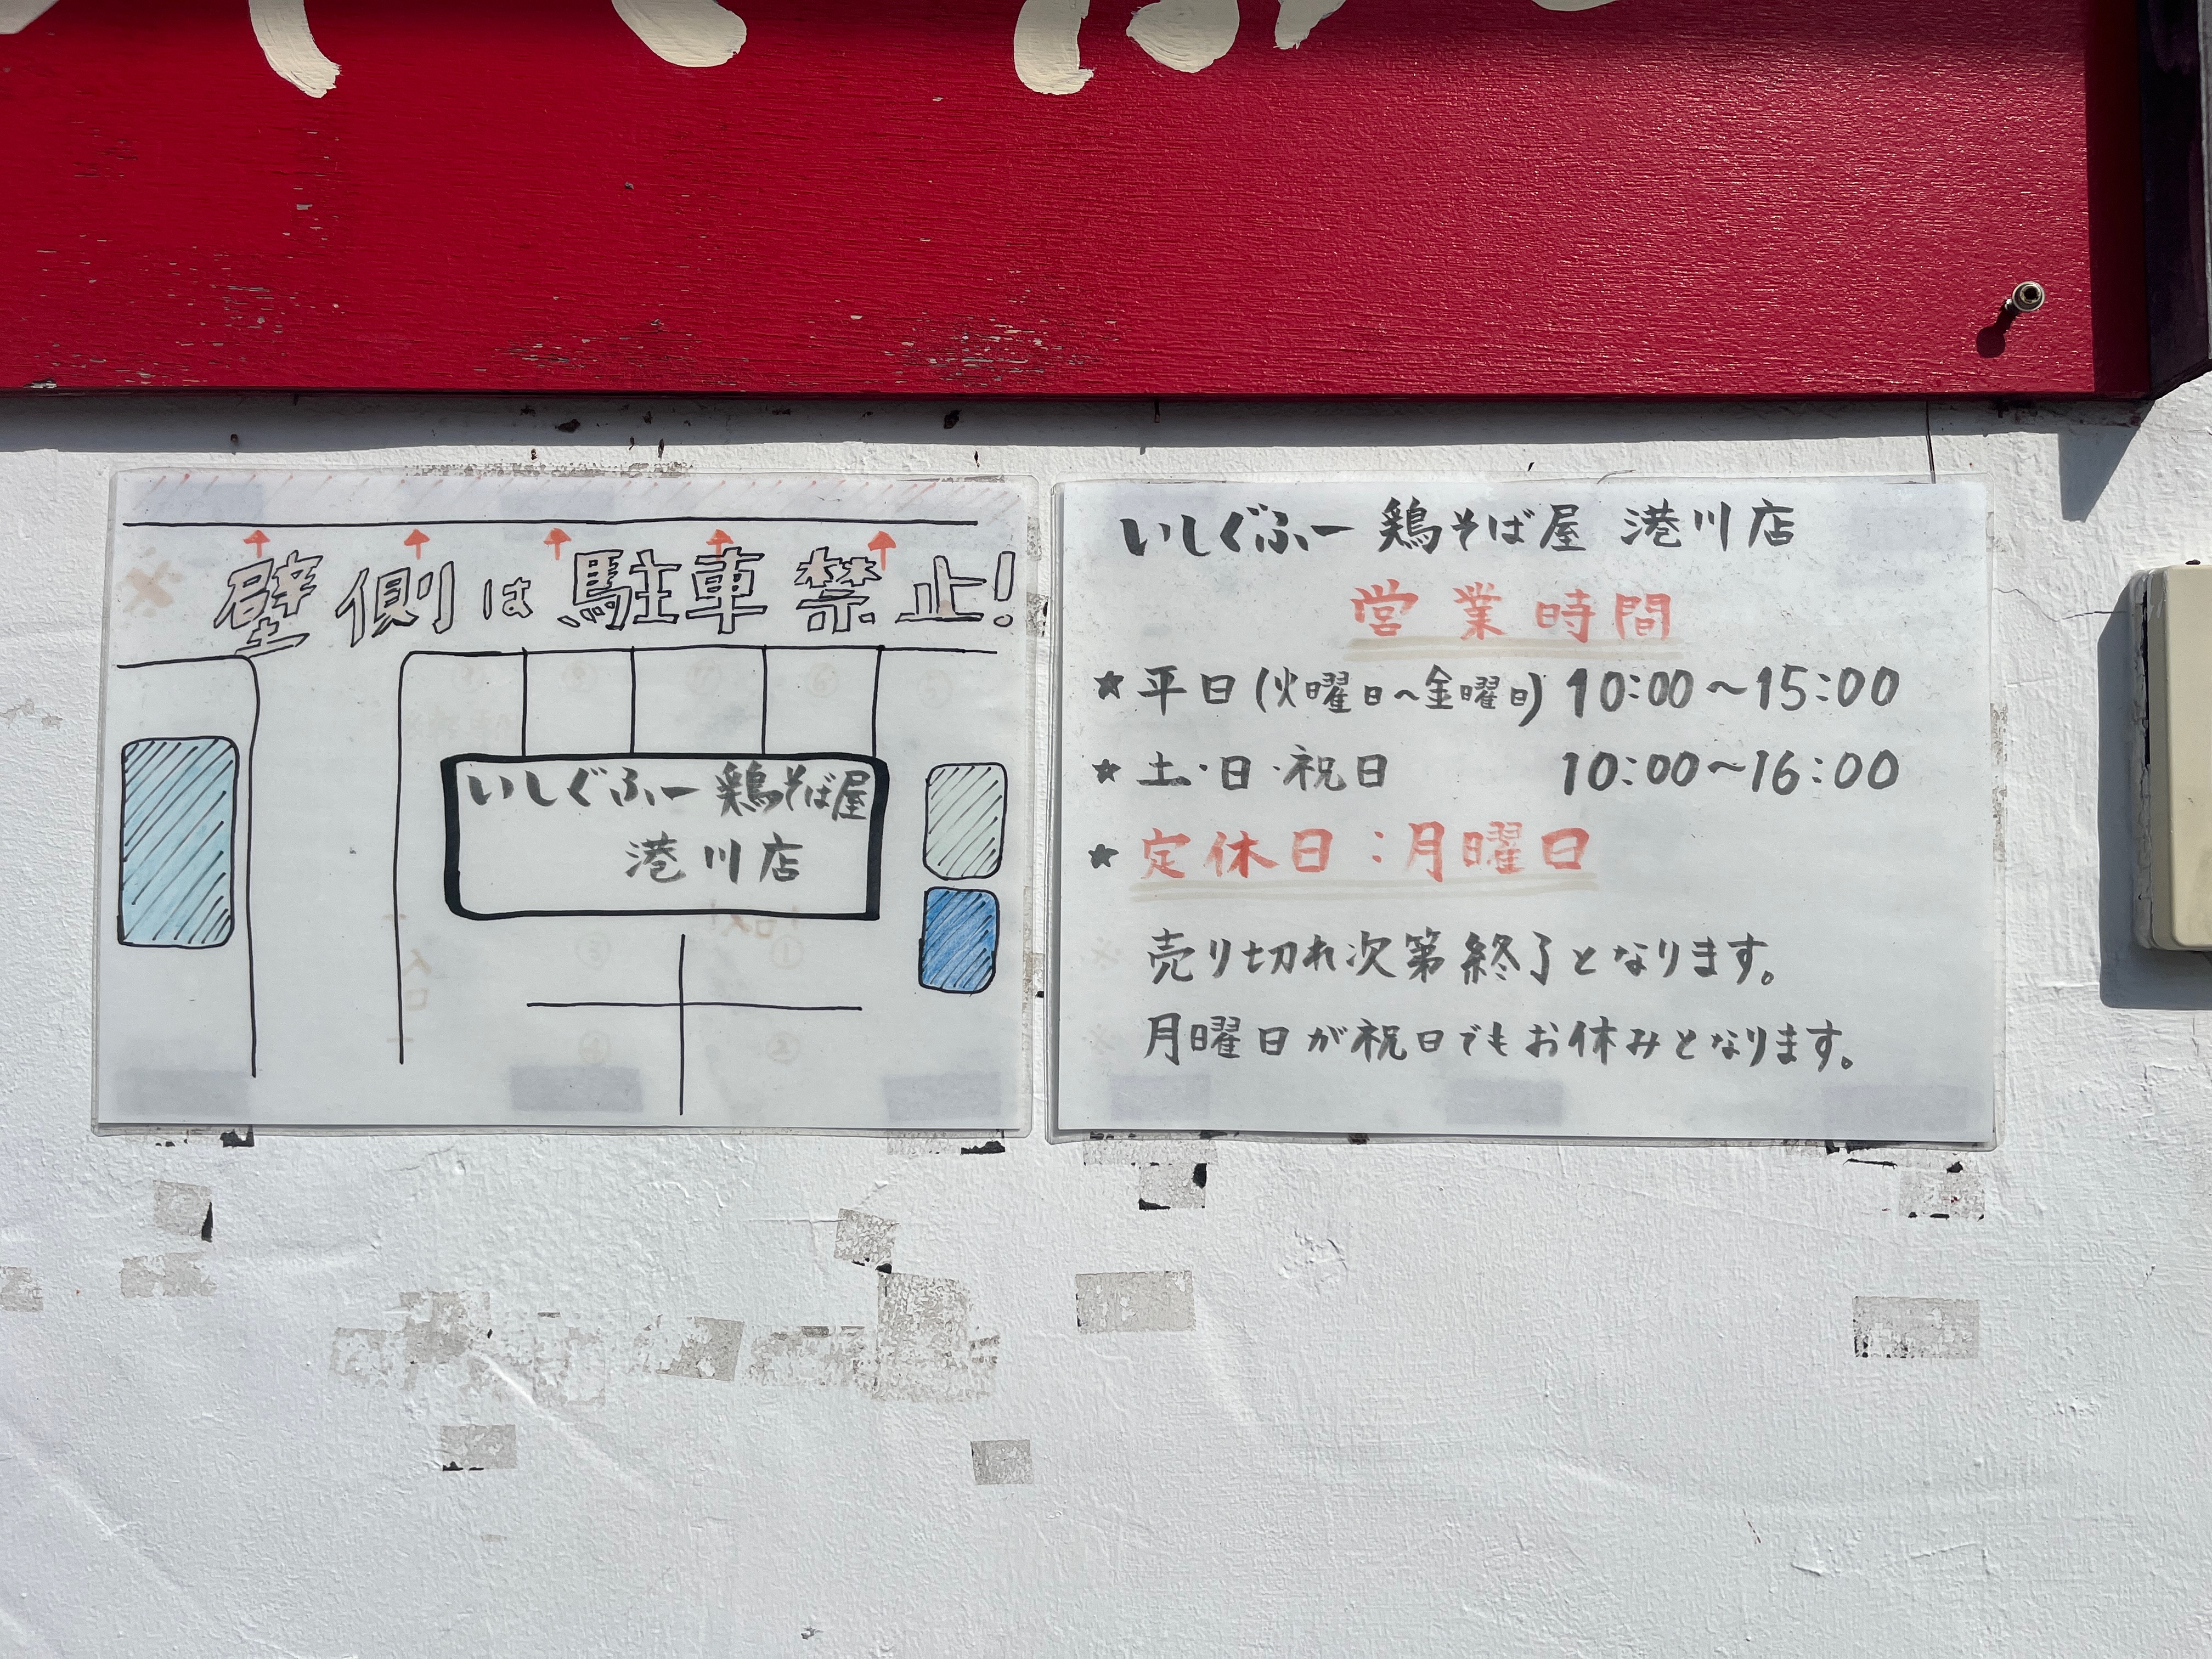 壁側は駐車禁止!
いしぐふー 鶏そば屋
港川店
いしぐふー 鶏そば屋 港川店
営業時間
★平日(火曜日~金曜日) 10:00~15:00
★土・日・祝日 10:00~16:00
★定休日:月曜日
売り切れ次第終了となります。
月曜日が祝日でもお休みとなります。